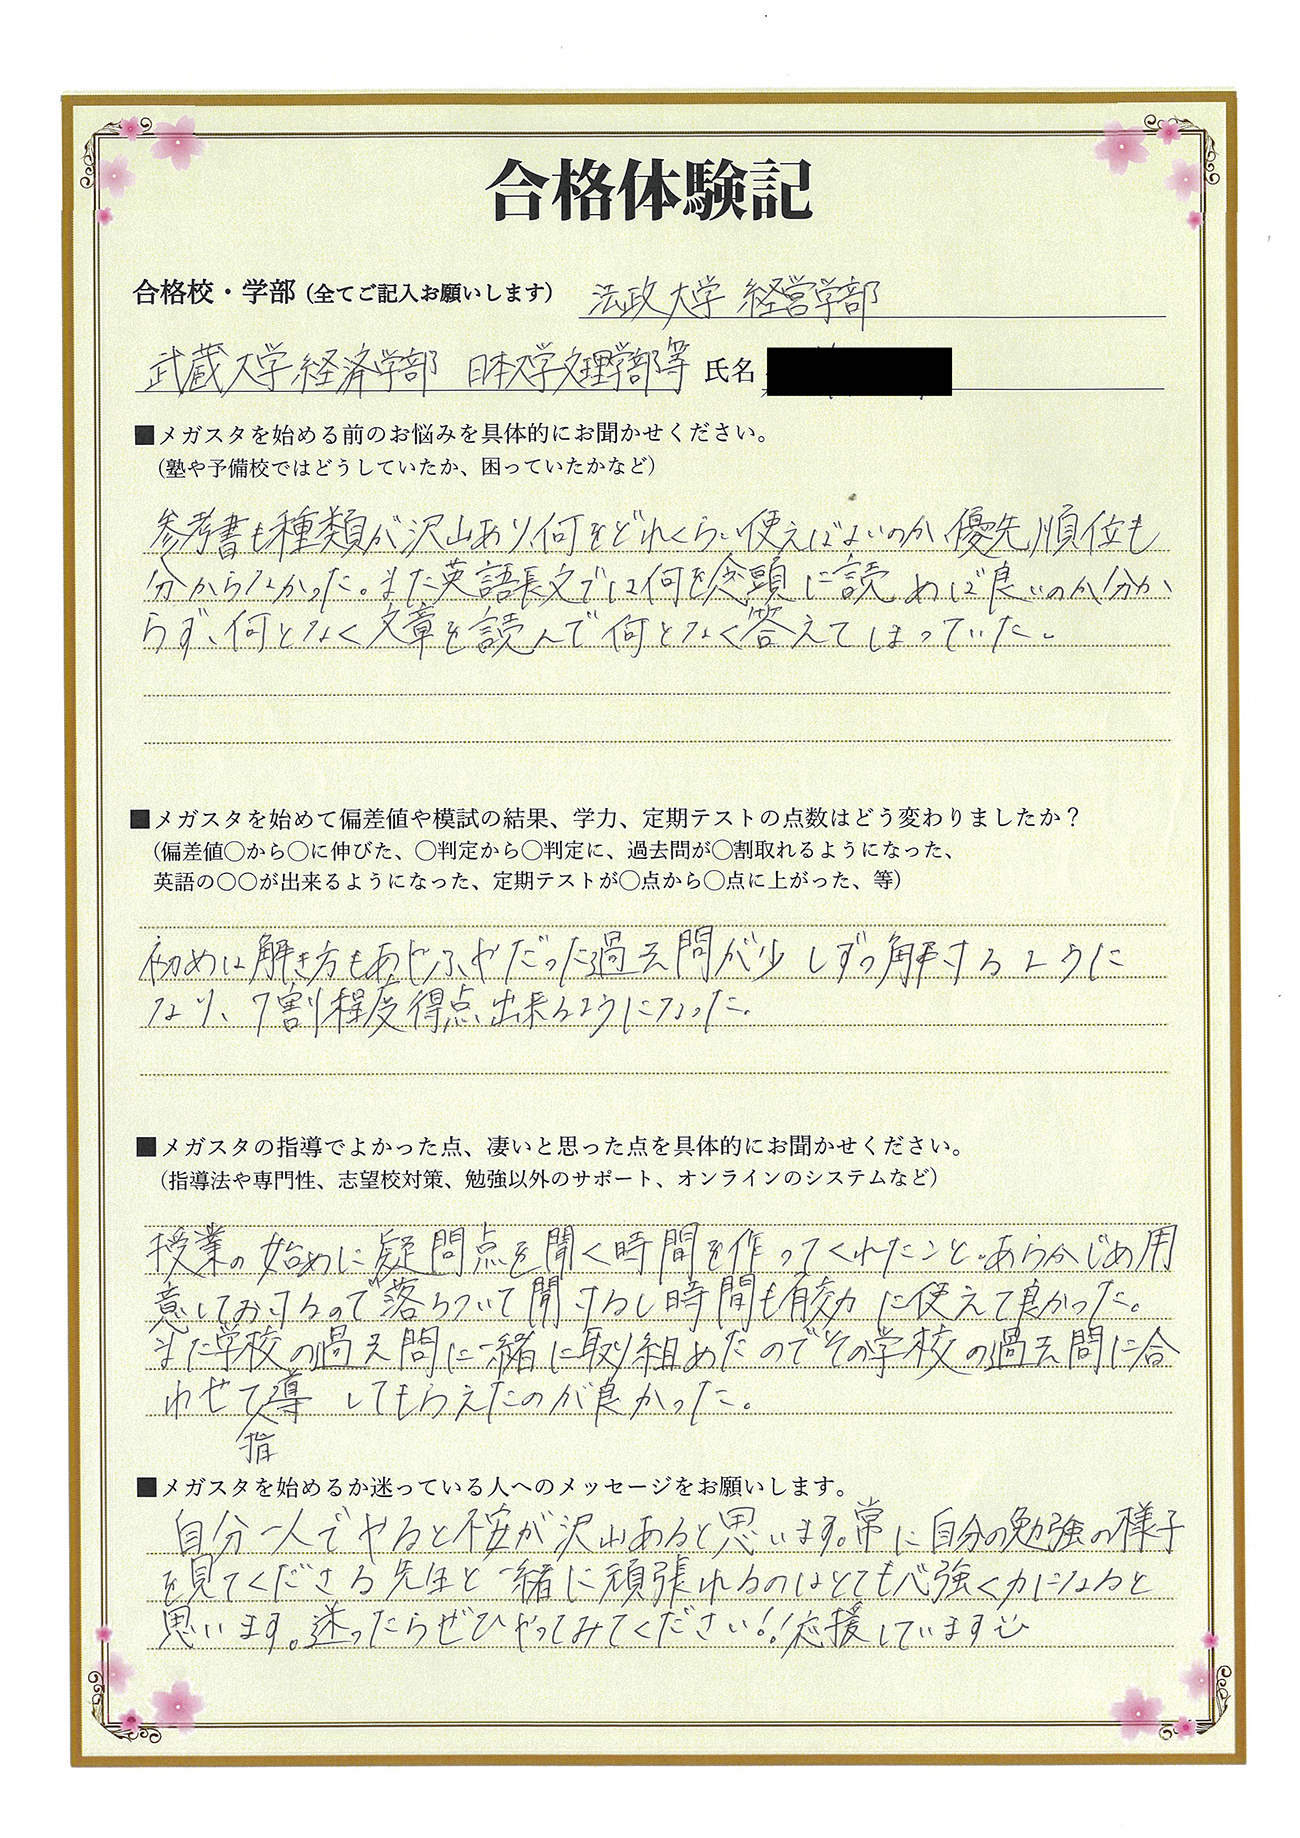 合格体験記
合格校・学部（全てご記入お願いします） 法政大学 経営学部
武蔵大学経済学部 日本大学文理学部等 氏名
■メガスタを始める前のお悩みを具体的にお聞かせください。
（塾や予備校ではどうしていたか、困っていたかなど）
参考書も種類が沢山あり、何をどれくらい使えばよいのか、優先順位も
分からなかった。また英語長文では何を念頭に読めば良いのか分か
らず、何となく文章を読んで何となく答えてしまっていた。
■メガスタを始めて偏差値や模試の結果、学力、定期テストの点数はどう変わりましたか？
（偏差値〇から〇に伸びた、〇判定から〇判定に、過去問が〇割取れるようになった、
英語の〇〇が出来るようになった、定期テストが〇点から〇点に上がった、等）
初めは解き方もあやふやだった過去問が少しずつ解けるように
なり、7割程度得点出来るようになった。
■メガスタの指導でよかった点、凄いと思った点を具体的にお聞かせください。
（指導法や専門性、志望校対策、勉強以外のサポート、オンラインのシステムなど）
授業の始めに疑問点を聞く時間を作ってくれたこと。あらかじめ用
意しておけるので落ちついて聞けるし時間も有効に使えて良かった。
また学校の過去問に一緒に取り組めたのでその学校の過去問に合
わせて指導してもらえたのが良かった。
■メガスタを始めるか迷っている人へのメッセージをお願いします。
自分一人でやると不安が沢山あると思います。常に自分の勉強の様子
を見てくださる先生と一緒に頑張れるのはとても心強く力になると
思います。迷ったらぜひやってみてください!!応援しています